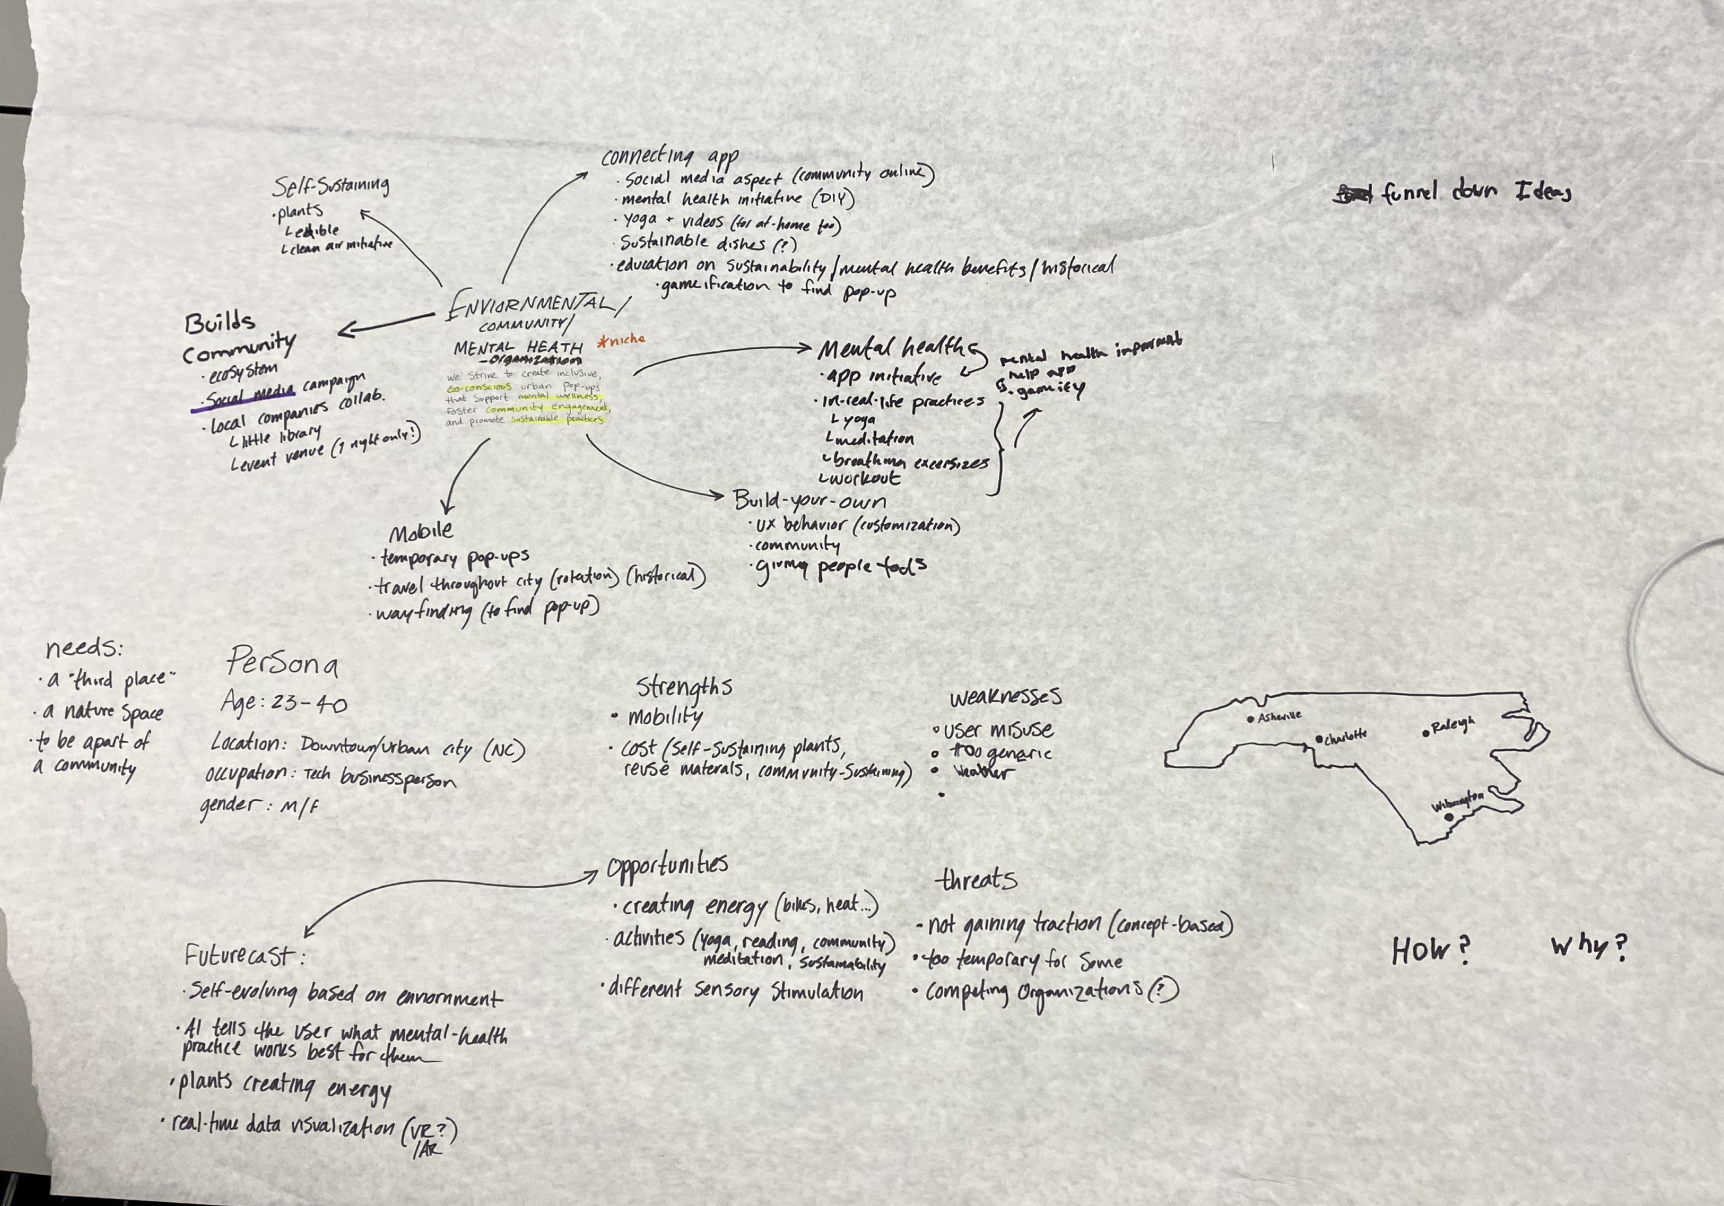 funnel down Ideas
Self-Sustaining
· plants
└ edible
└ clean air initiative
connecting app
· Social media aspect (community online)
· mental health initiative (DIY)
· yoga + videos (for at-home too)
· Sustainable dishes (?)
· education on Sustainability/mental health benefits/historical
· gameification to find pop-up
ENVIORNMENTAL/
COMMUNITY/
MENTAL HEATH
*niche
-ORGANIZATION
we strive to create inclusive,
eco-conscious urban pop-ups
that support mental wellness,
foster community engagement,
and promote sustainable practices.
Builds
Community
· ecosystem
· Social media campaign
· Local companies collab.
└ little library
└ event venue (1 night only!)
Mental health
· app initiative
· in-real-life practices
└ yoga
└ meditation
└ breathing excersizes
└ workout
mental health
help app
· gameify
Build-your-own
· UX behavior (customization)
· community
· giving people tools
Mobile
· temporary pop-ups
· travel throughout city (rotation) (historical)
· wayfinding (to find pop-up)
needs:
· a "third place"
· a nature space
· to be apart of
a community
Persona
Age: 23-40
Location: Downtown/Urban city (NC)
occupation: Tech businessperson
gender: M/F
Strengths
• mobility
· cost (self-sustaining plants,
reuse materals, community-sustaining)
weaknesses
• user misuse
• too generic
• weather
•
Asheville
Charlotte
Raleigh
Wilmington
Opportunities
· creating energy (bikes, heat...)
· activities (yoga, reading, community)
meditation, sustainability
· different Sensory Stimulation
threats
· not gaining traction (concept-based)
· too temporary for some
· Competing Organizations (?)
How?
Why?
Futurecast:
· Self-evolving based on
· AI tells the user what mental-health
practice works best for them
· plants creating energy
· real-time data visualization (VR?)
/AR